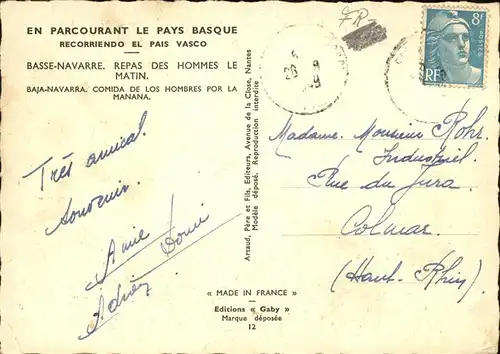 EN PARCOURANT LE PAYS BASQUE
RECORRIENDO EL PAIS VASCO
BASSE-NAVARRE. REPAS DES HOMMES LE
MATIN.
BAJA-NAVARRA. COMIDA DE LOS HOMBRES POR LA
MANANA.
Très amical
souvenir.
Artaud, Père et Fils, Editeurs, Avenue de la Close, Nantes
Modèle déposé. Reproduction interdite
8F
RF
Madame. Monsieur Rohr.
Industriel.
Rue du Jura.
Colmar.
(Haut-Rhin)
« MADE IN FRANCE »
Editions « Gaby »
Marque déposée
12